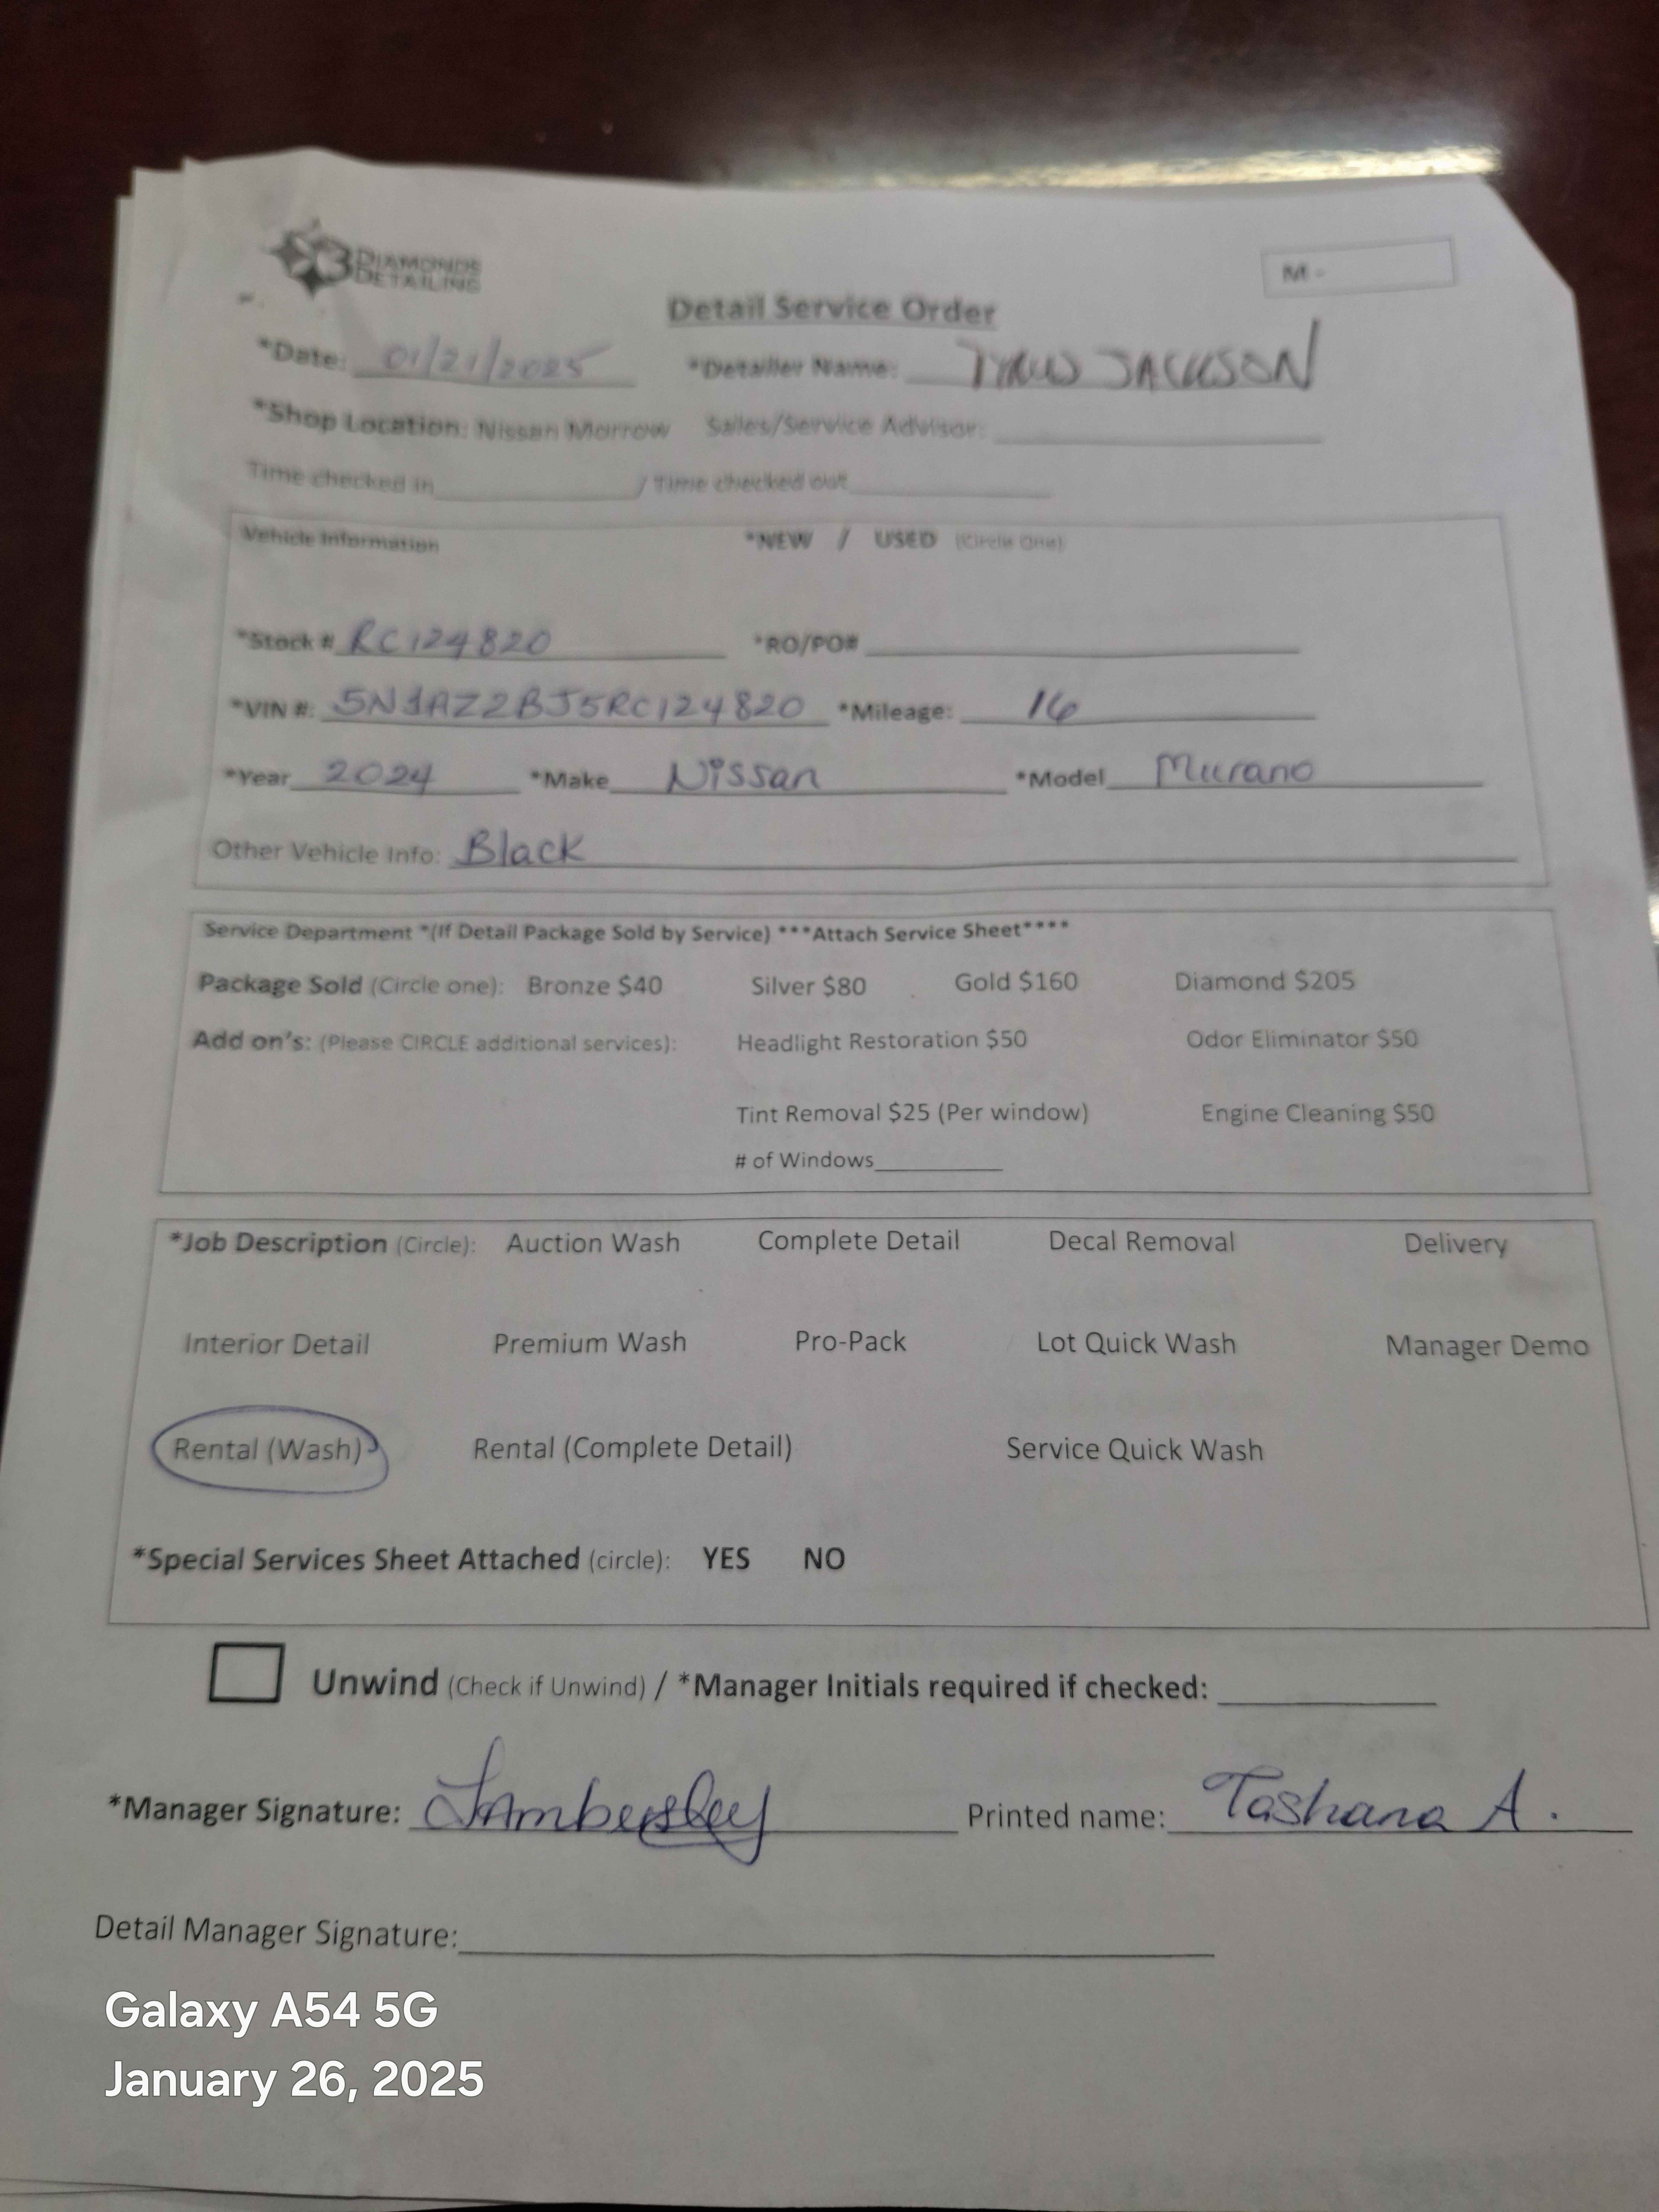 3 DIAMONDS DETAILING
M-
Detail Service Order
*Date: 01/21/2025 *Detailer Name: TYRUS JACKSON
*Shop Location: Nissan Morrow Sales/Service Advisor:
Time checked in / Time checked out
Vehicle Information *NEW / USED (Circle One)
*Stock # RC124820 *RO/PO#
*VIN #: 5N1AZ2BJ5RC124820 *Mileage: 16
*Year 2024 *Make Nissan *Model Murano
Other Vehicle Info: Black
Service Department *(If Detail Package Sold by Service) ***Attach Service Sheet****
Package Sold (Circle one): Bronze $40 Silver $80 Gold $160 Diamond $205
Add on's: (Please CIRCLE additional services): Headlight Restoration $50 Odor Eliminator $50
Tint Removal $25 (Per window) Engine Cleaning $50
# of Windows
*Job Description (Circle): Auction Wash Complete Detail Decal Removal Delivery
Interior Detail Premium Wash Pro-Pack Lot Quick Wash Manager Demo
Rental (Wash) Rental (Complete Detail) Service Quick Wash
*Special Services Sheet Attached (circle): YES NO
Unwind (Check if Unwind) / *Manager Initials required if checked:
*Manager Signature: Printed name: Tashana A.
Detail Manager Signature:
Galaxy A54 5G
January 26, 2025